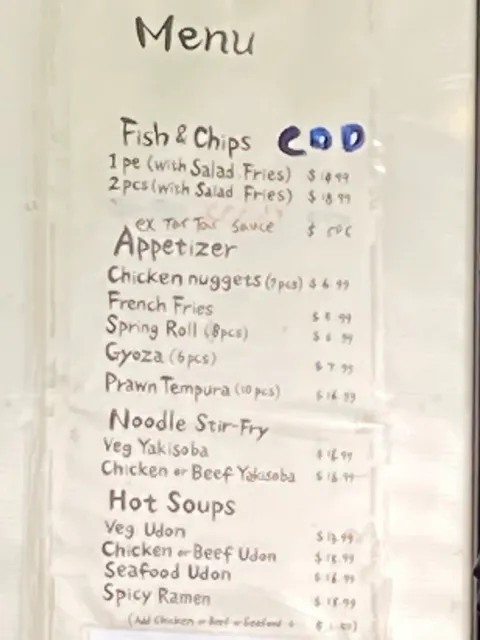 Menu
Fish & Chips COD
1 pc (with Salad Fries)
2 pcs (with Salad Fries) $ 18.99
ex Tar Tar Sauce $ 50¢
Appetizer
Chicken nuggets (7pcs) $ 6.99
French Fries
Spring Roll (8pcs)
Gyoza (6pcs) $ 7.99
Prawn Tempura (10pcs) $ 16.99
Noodle Stir-Fry
Veg Yakisoba
Chicken or Beef Yakisoba
Hot Soups
Veg Udon
Chicken or Beef Udon
Seafood Udon
Spicy Ramen
(Add Chicken or Beef or Seafood +